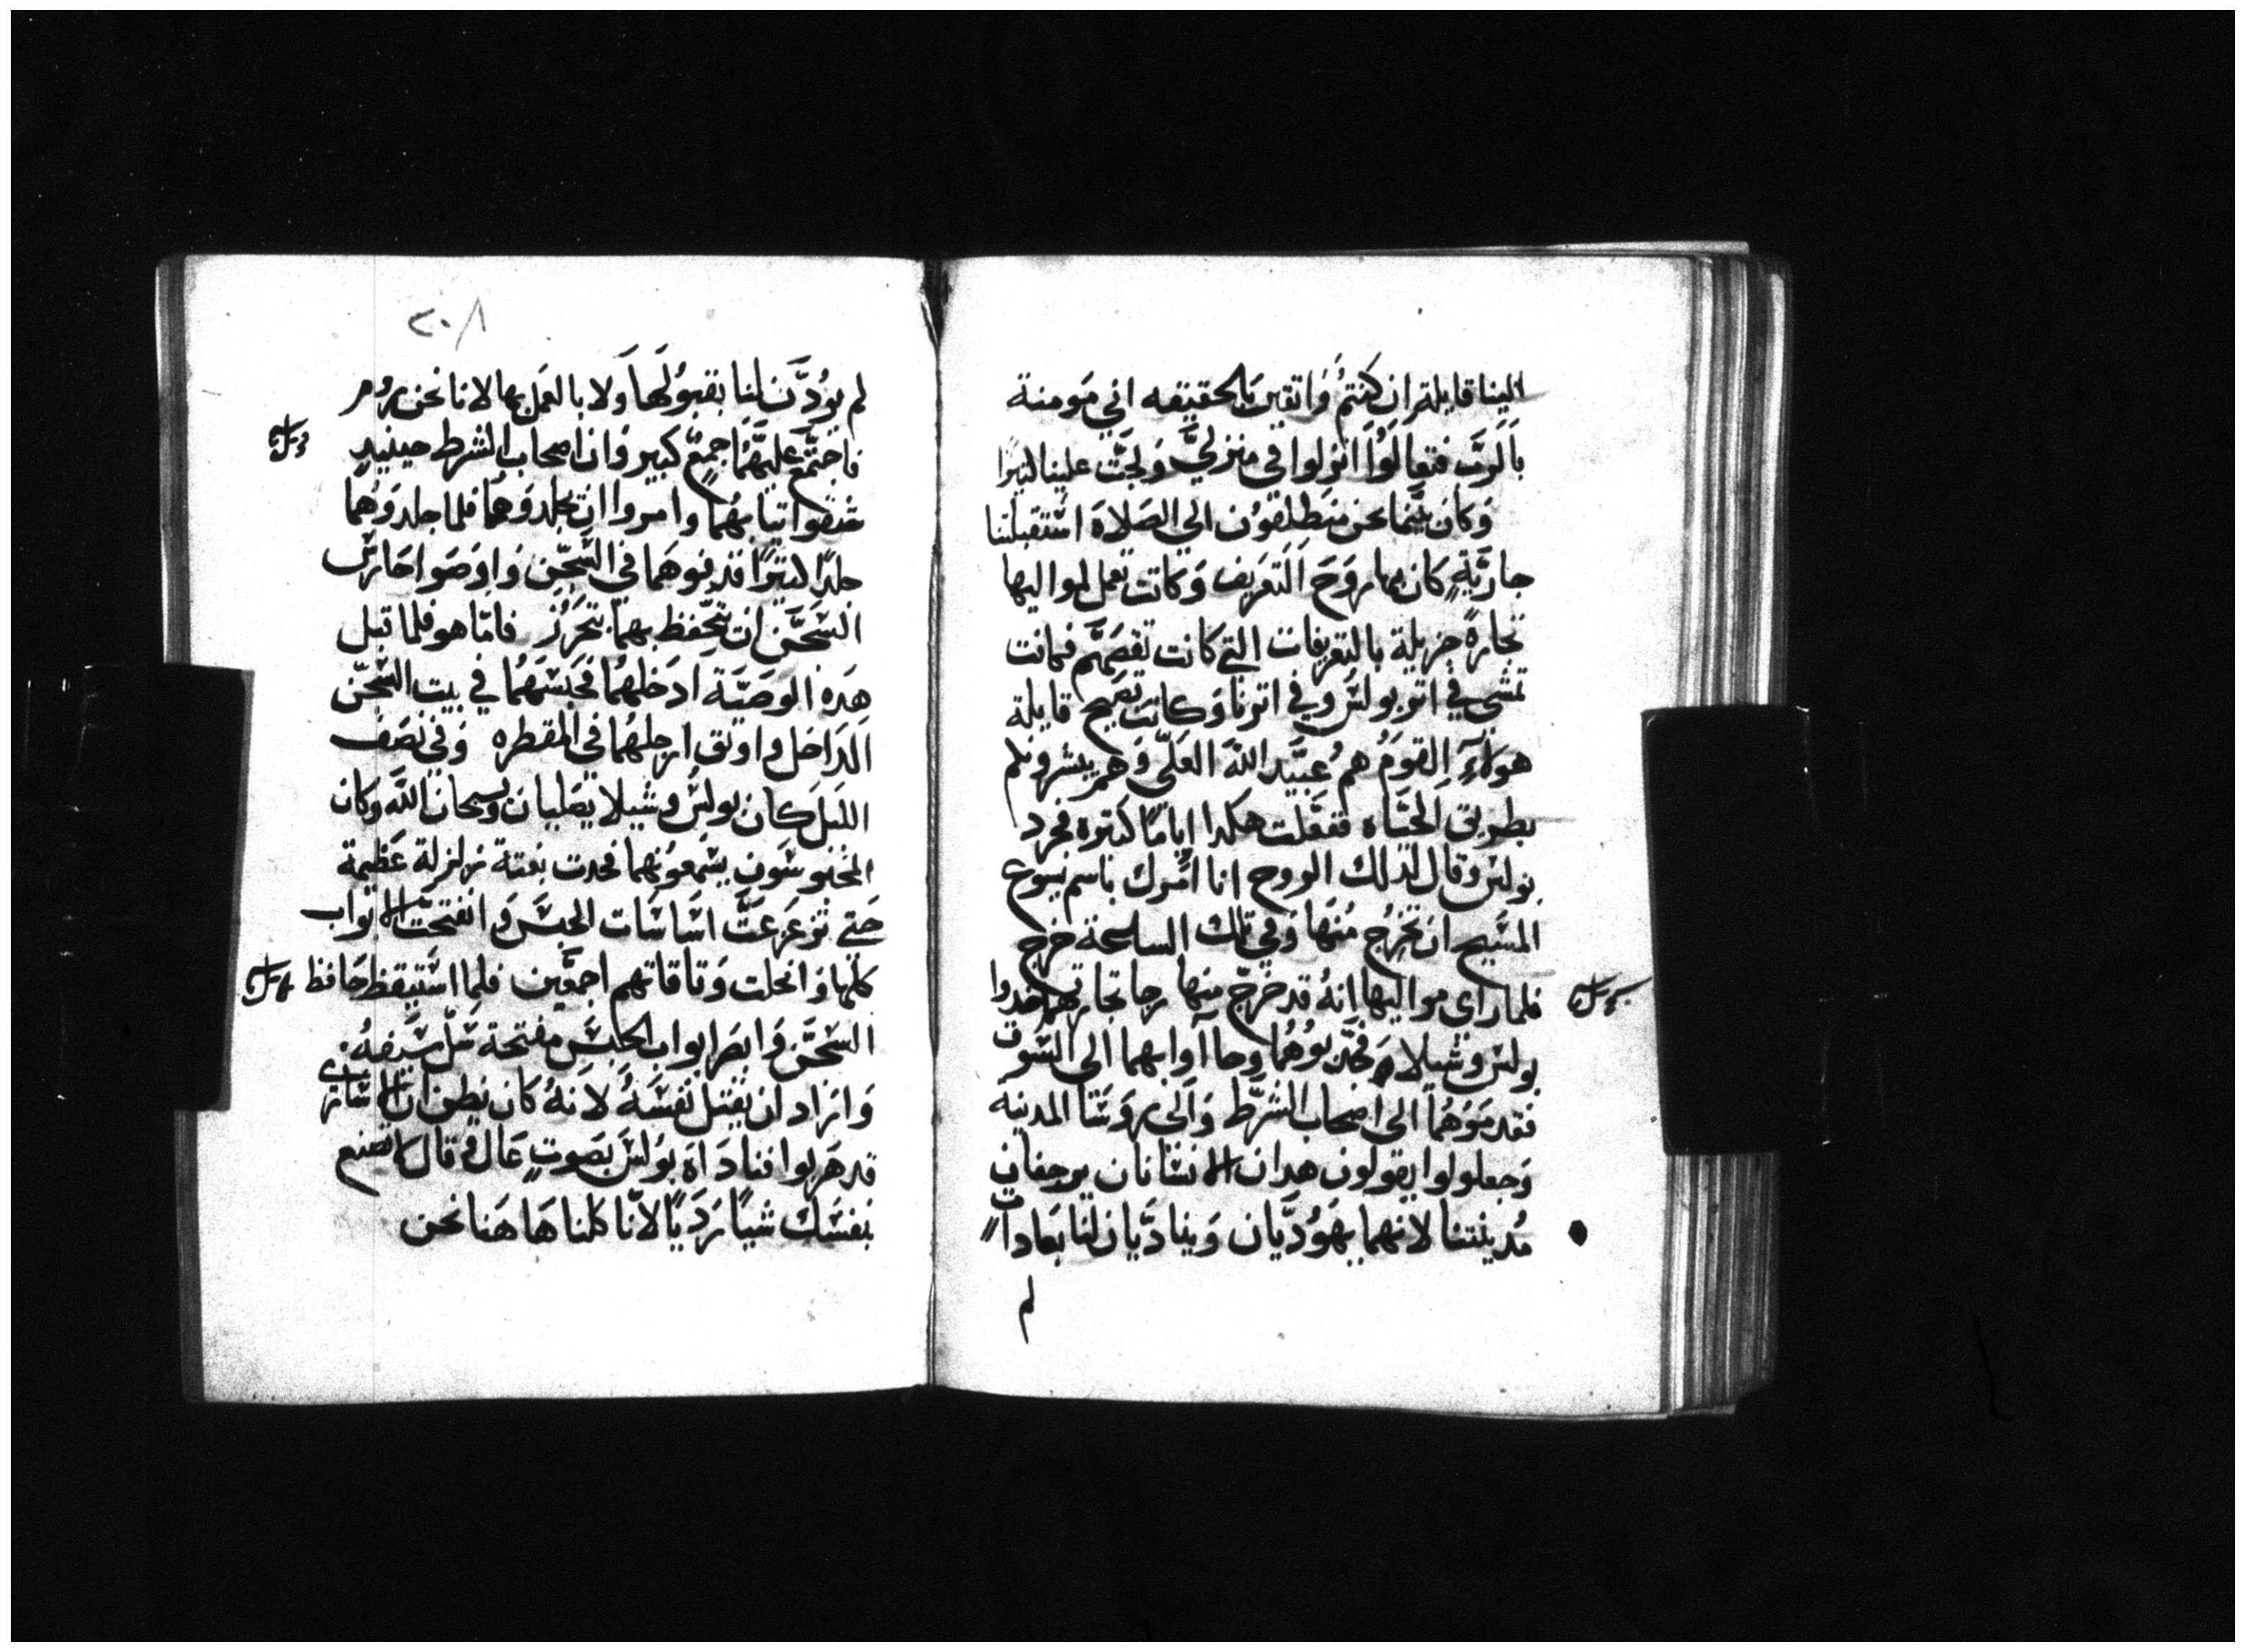 الينا قايلة ان كنتم واتقين بالحقيقه اني مومنة
بالرب فتعالوا انزلوا في منزلي ولجت علينا كتيرا
وكان بينما نحن منطلقون الى الصلاه استقبلتنا
جارية كان بها روح التعريف وكانت تعمل لمواليها
تجارة جزيلة بالتعريفات التي كانت تقصهم فمانت
تمشي في اتر بولس وفي اترنا وكانت تصيح قايلة
هولاء القوم هم عبيد الله العلي وهم يبشرونكم
بطريق الحياه ففعلت هكدا اياما كتيره فحرد
بولس وقال لذلك الروح انا امرك باسم يسوع
المسيح ان تخرج منها وفي تلك الساعة خرج
فلما راي مواليها انه قد خرج منها رجا تجارتهم اخدوا
بولس وشيلا فجدبوهما وجااوا بهما الى السوق
فقدموهما الى اصحاب الشرط والى روسا المدينه
وجعلوا يقولون هدان الانسانان يرجفان
مدينتنا لانهما يهوديان ويناديان لنا بعادات
لم
٢٠٨
لم يودن لنا بقبولها ولا بالعمل بها لانا نحن روم
فاجتمع عليهما جمع كبير وان اصحاب الشرط حينيد
شقوا تيابهما وامروا ان يجلدوهما فلما جلدوهما
جلدا كتيرا قدفوهما في السجن واوصوا حارس
السجن ان يتحفظ بهما بتحرز فاما هو فلما قبل
هده الوصية ادخلهما فحبسهما في بيت السجن
الداخل واوتق ارجلهما في المقطره وفي نصف
الليل كان بولس وشيلا يصليان ويسبحان الله وكان
المحبوسون يسمعونهما فحدت بغتة زلزلة عظيمة
حتي تزعزعت اساسات الحبس وانفتحت الابواب
كلها وانحلت وتاقاتهم اجمعين فلما استيقظ حافظ
السجن وابصر ابواب الحبس مفتحة سل سيفه
واراد ان يقتل نفسه لانه كان يظن ان الاساري
قد هربوا فناداه بولس بصوت عال وقال لا تصنع
بنفسك شيا رديا لانا كلنا هاهنا نحن